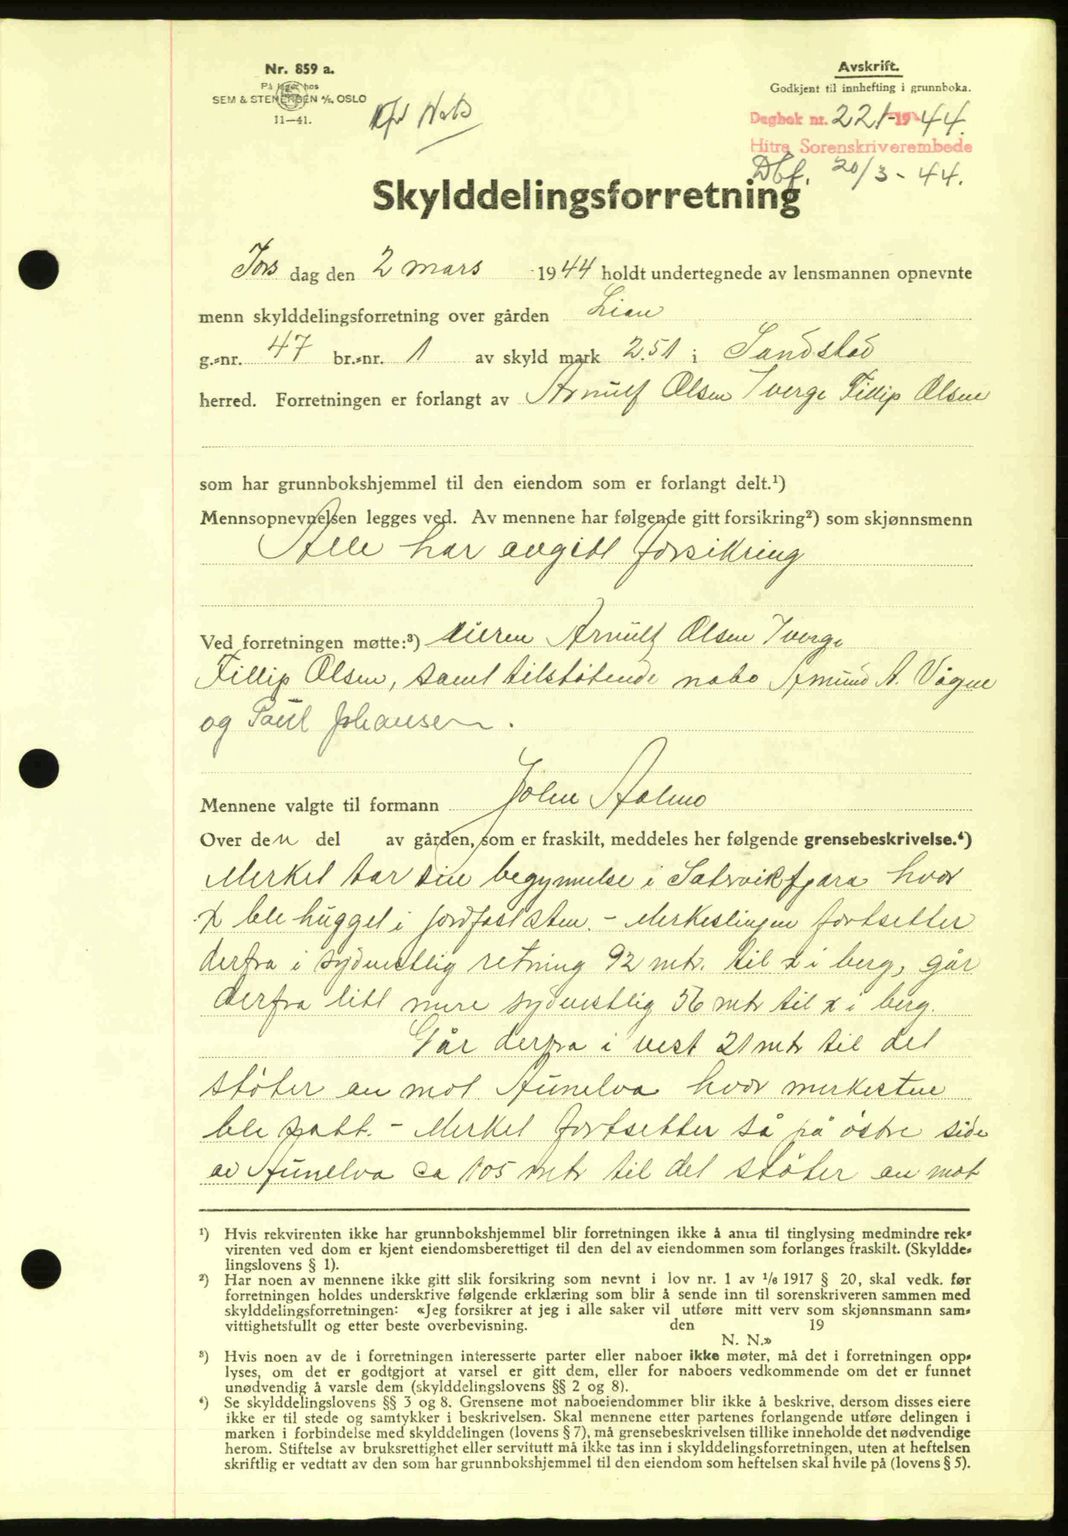 Nr. 859 a.
På lager hos
SEM & STENERSEN A/S, OSLO
11—41.
Avskrift.
Godkjent til innhefting i grunnboka.
Dagbok nr. 221-1944.
Hitra Sorenskriverembede
Dbf. 20/3-44.
Skylddelingsforretning
Tors dag den 2 mars 1944 holdt undertegnede av lensmannen opnevnte
menn skylddelingsforretning over gården Lian
g.-nr. 47 br.-nr. 1 av skyld mark 2.51 i Sandstad
herred. Forretningen er forlangt av Arnulf Olsen Fillip Olsen
som har grunnbokshjemmel til den eiendom som er forlangt delt.¹)
Mennsopnevnelsen legges ved. Av mennene har følgende gitt forsikring²) som skjønnsmenn
Alle har avgitt forsikring
Ved forretningen møtte:³) eieren Arnulf Olsen
Fillip Olsen, samt tilstøtende nabo Amund A. Vågne
og Paul Johansen.
Mennene valgte til formann John Aalmo
Over den del av gården, som er fraskilt, meddeles her følgende grensebeskrivelse.⁴)
Merket tar sin begynnelse i fjæra hvor
x ble hugget i jordfast sten. – Merkeslinjen fortsetter
derfra i sydvestlig retning 92 mtr. til x i berg, går
derfra litt mere sydvestlig 56 mtr til x i berg.
Går derfra i vest 21 mtr til det
støter an mot Aunelva hvor merkesten
ble satt. – Merket fortsetter så på østre side
av Aunelva ca 105 mtr til det støter an mot
¹) Hvis rekvirenten ikke har grunnbokshjemmel blir forretningen ikke å anta til tinglysing medmindre rek-
virenten ved dom er kjent eiendomsberettiget til den del av eiendommen som forlanges fraskilt. (Skyldde-
lingslovens § 1).
²) Har noen av mennene ikke gitt slik forsikring som nevnt i lov nr. 1 av 1/6 1917 § 20, skal vedk. før
forretningen holdes underskrive følgende erklæring som blir å sende inn til sorenskriveren sammen med
skylddelingsforretningen: «Jeg forsikrer at jeg i alle saker vil utføre mitt verv som skjønnsmann sam-
vittighetsfullt og etter beste overbevisning. den 19
N. N.»
³) Hvis noen av de i forretningen interesserte parter eller naboer ikke møter, må det i forretningen opp-
lyses, om det er godtgjort at varsel er gitt dem, eller for naboers vedkommende om det er funnet
unødvendig å varsle dem (skylddelingslovens §§ 2 og 8).
⁴) Se skylddelingslovens §§ 3 og 8. Grensene mot naboeiendommer blir ikke å beskrive, dersom disses eiere
ikke er til stede og samtykker i beskrivelsen. Skal mennene etter partenes forlangende utføre delingen i
marken i forbindelse med skylddelingen (lovens § 7), må grensebeskrivelsen tillike inneholde det nødvendige
herom. Stiftelse av bruksrettighet eller servitutt må ikke tas inn i skylddelingsforretningen, uten at heftelsen
skriftlig er vedtatt av den som har grunnbokshjemmel til den eiendom som heftelsen skal hvile på (lovens § 5).